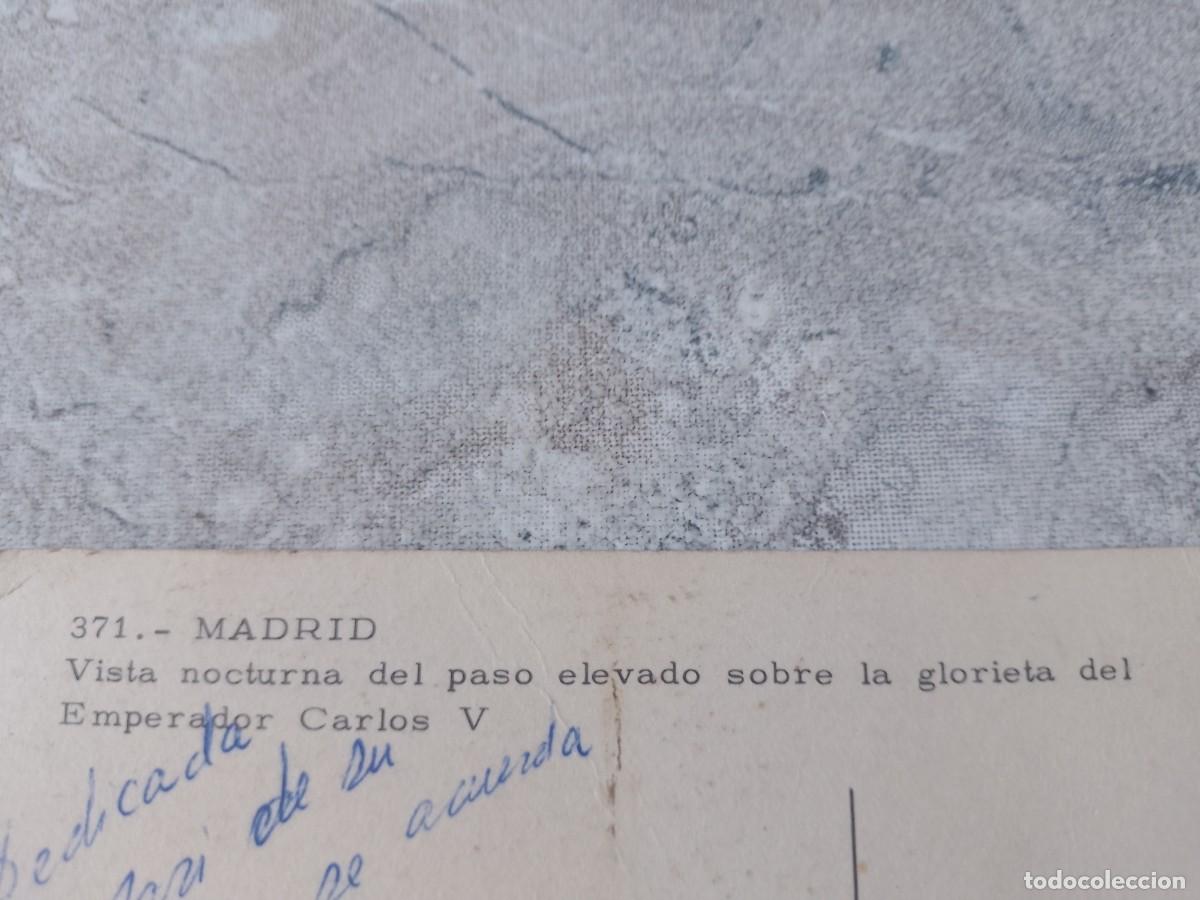 371.- MADRID
Vista nocturna del paso elevado sobre la glorieta del
Emperador Carlos V
Dedicada
de su
se acuerda
todocoleccion